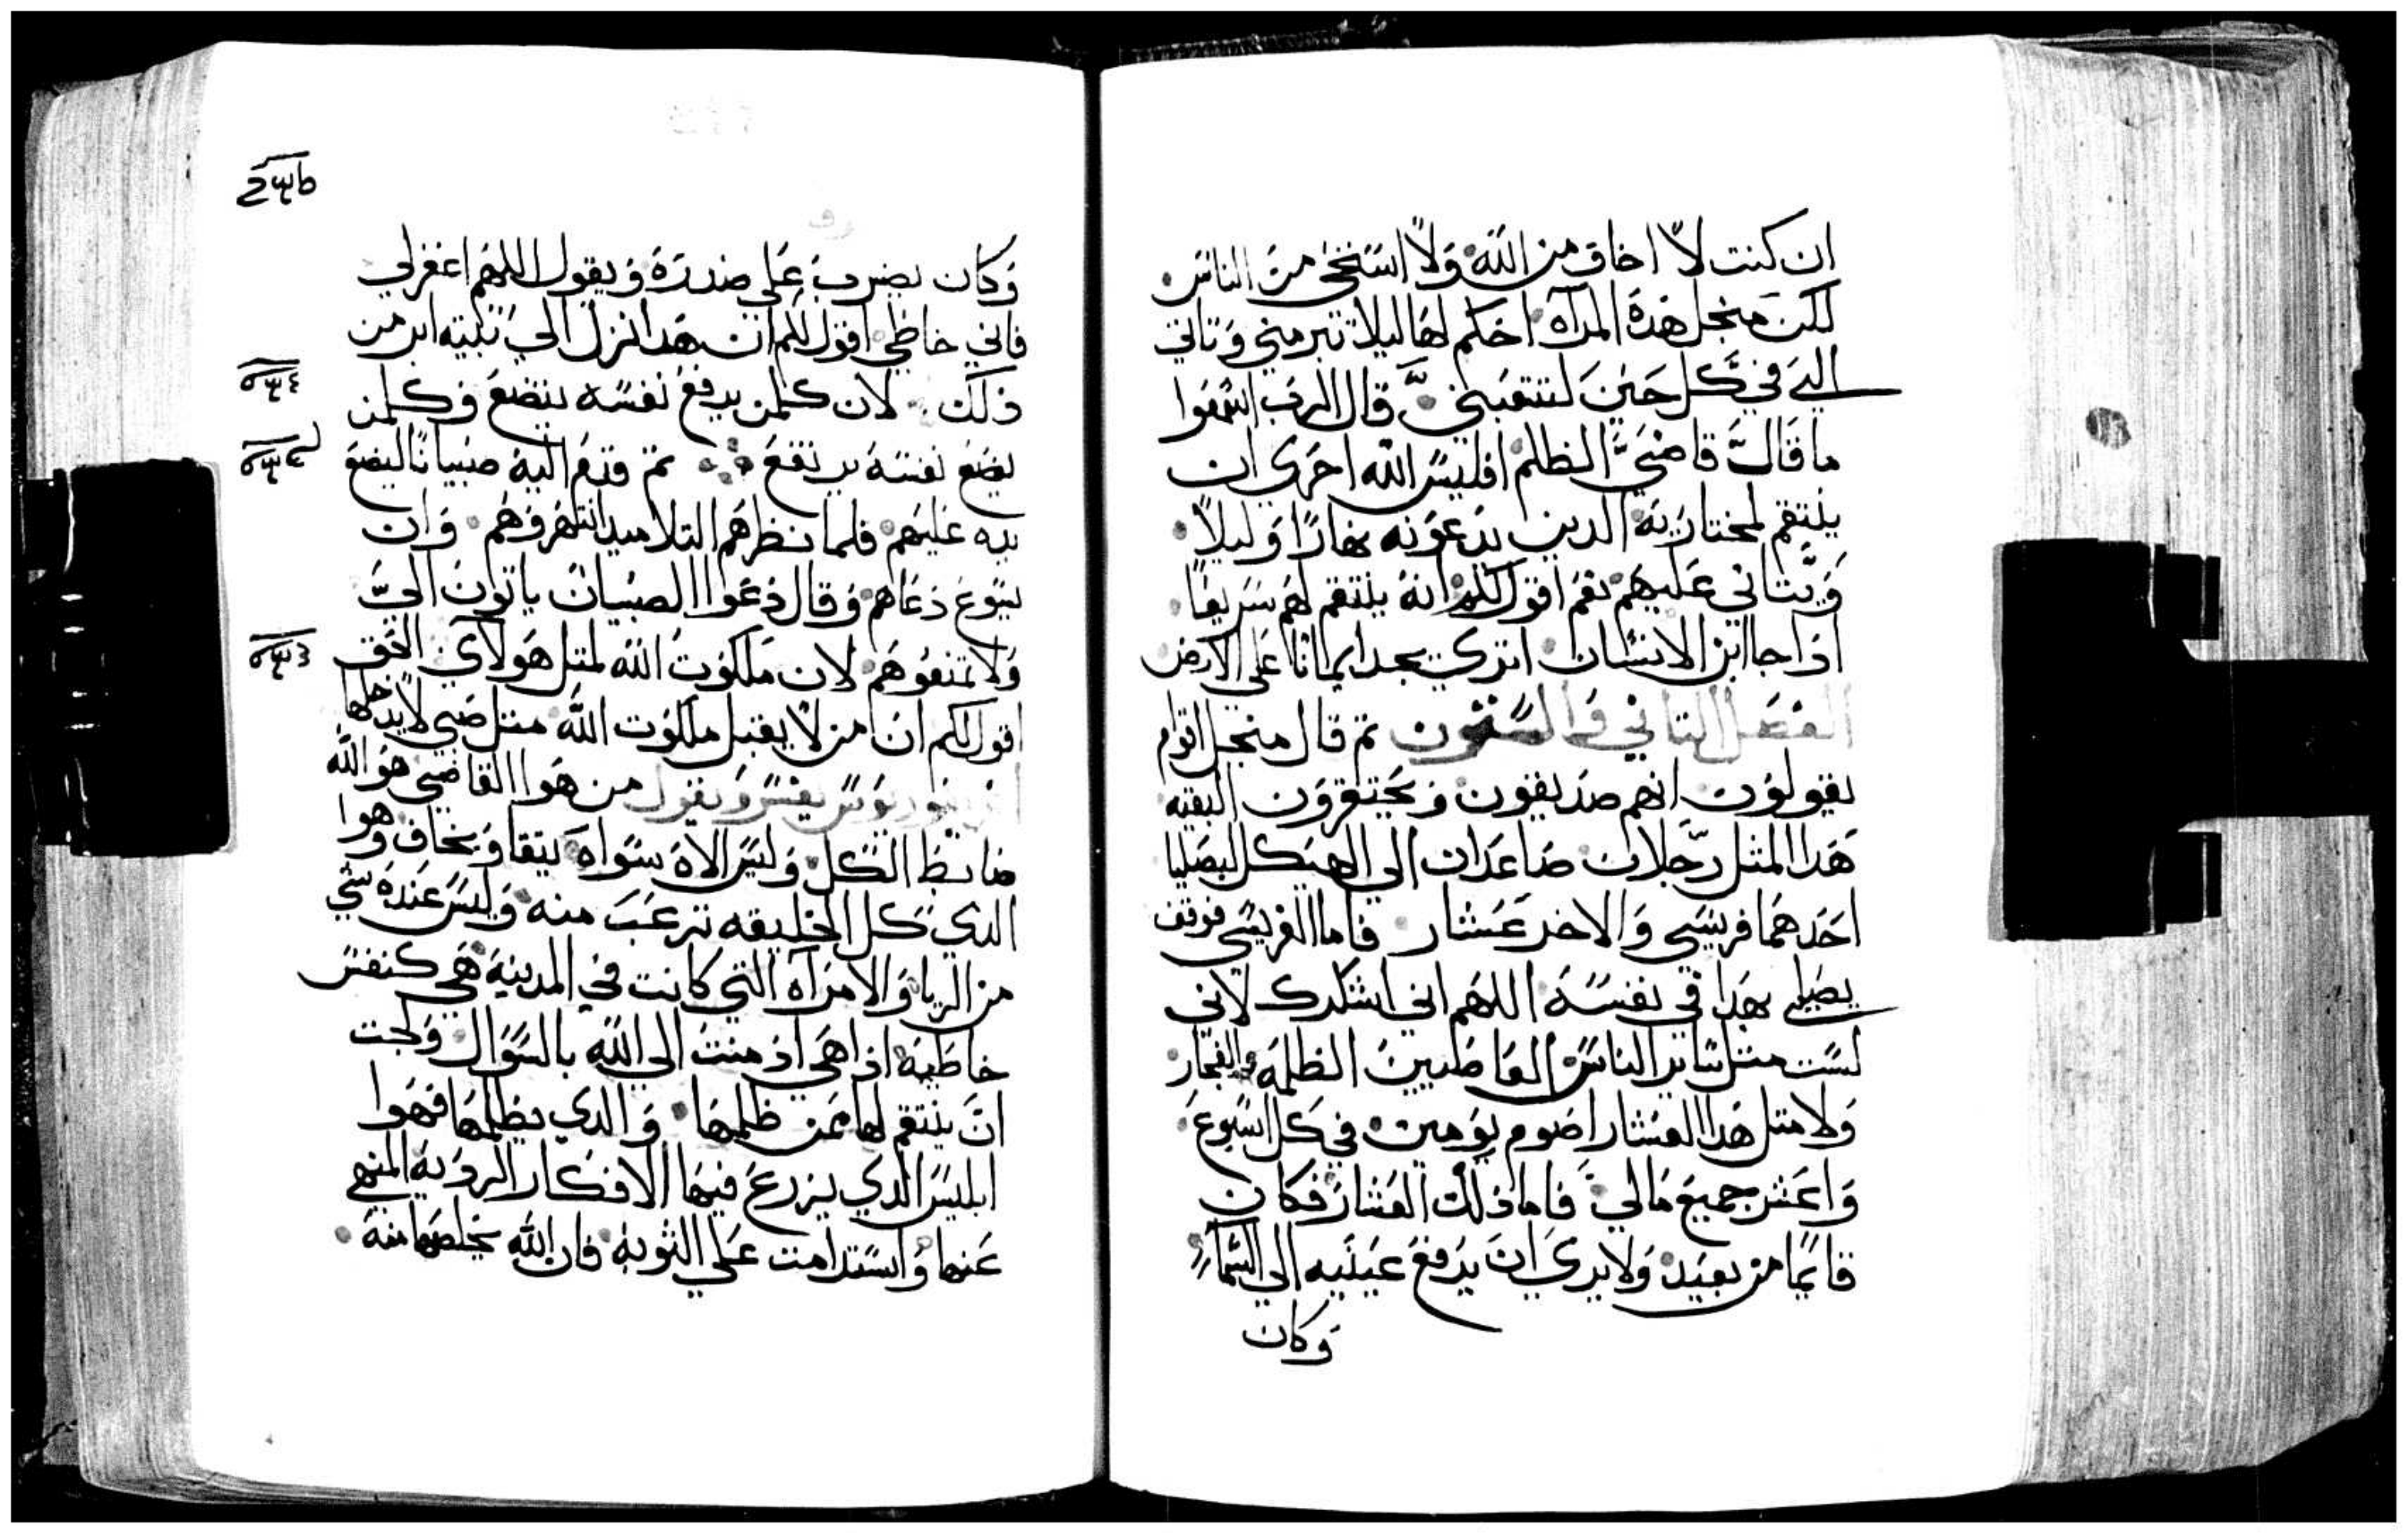 ان كنت لا اخاف من الله ولا استحي من الناس
لكن منجل هذه المرآه احكم لها ليلا تبرمني وتاتي
الي في كل حين لتتعبني قال الرب اسمعوا
ما قال قاضي الظلم افليس الله احري ان
ينتقم لمختاريه الدين يدعونه نهارًا وليلاً
ويتاني عليهم نعم اقول لكم انه ينتقم لهم سريعًا
اذا جا ابن الانسان اتري يجد ايمانًا علي الارض
الفصل التاني والستون تم قال منجل اقوام
يقولون انهم صديقون ويحتقرون البقيه
هدا المتل رجلان صاعدان الي الهيكل ليصليا
احدهما فريسي والاخر عشار فاما الفريسي فوقف
يصلي بهدا في نفسه اللهم اني اشكرك لاني
لست متل ساير الناس الخاطيين الظلمه والفجار
ولا متل هدا العشار اصوم يومين في كل اسبوع
واعشر جميع مالي فاما ذلك العشار فكان
قايمًا من بعيد ولا يري ان يرفع عينيه الي السمآء
وكان
وكان يضرب علي صدره ويقول اللهم اغفرلي
فاني خاطي اقول لكم ان هدا نزل الي بيته ابر من
ذلك لان كلمن يرفع نفسه يتضع وكلمن
يضع نفسه يرتفع تم قدم اليه صبيانًا ليضع
يده عليهم فلما نظرهم التلاميد انتهروهم وان
يسوع دعاهم وقال دعوا الصبيان ياتون اليَّ
ولا تمنعوهم لان ملكوت الله لمتل هولاي الحق
اقول لكم ان من لا يقبل ملكوت الله متل صبي لا يدخلها
يفسر ويقول من هوا القاضي هو الله
ضابط الكل وليس الاه سواه يتقا ويخاف وهوا
الدي كل الخليقه ترعب منه وليس عنده شي
من الريا والامرآه التي كانت في المدينة هي كنفس
خاطية اذا هي ادمنت الي الله بالسوال ولجت
ان ينتقم لها ممن ظلمها والدي يظلمها فهوا
ابليس الدي يزرع فيها الافكار الردية المنهي
عنها واستدامت علي التوبه فان الله يخلصها منه